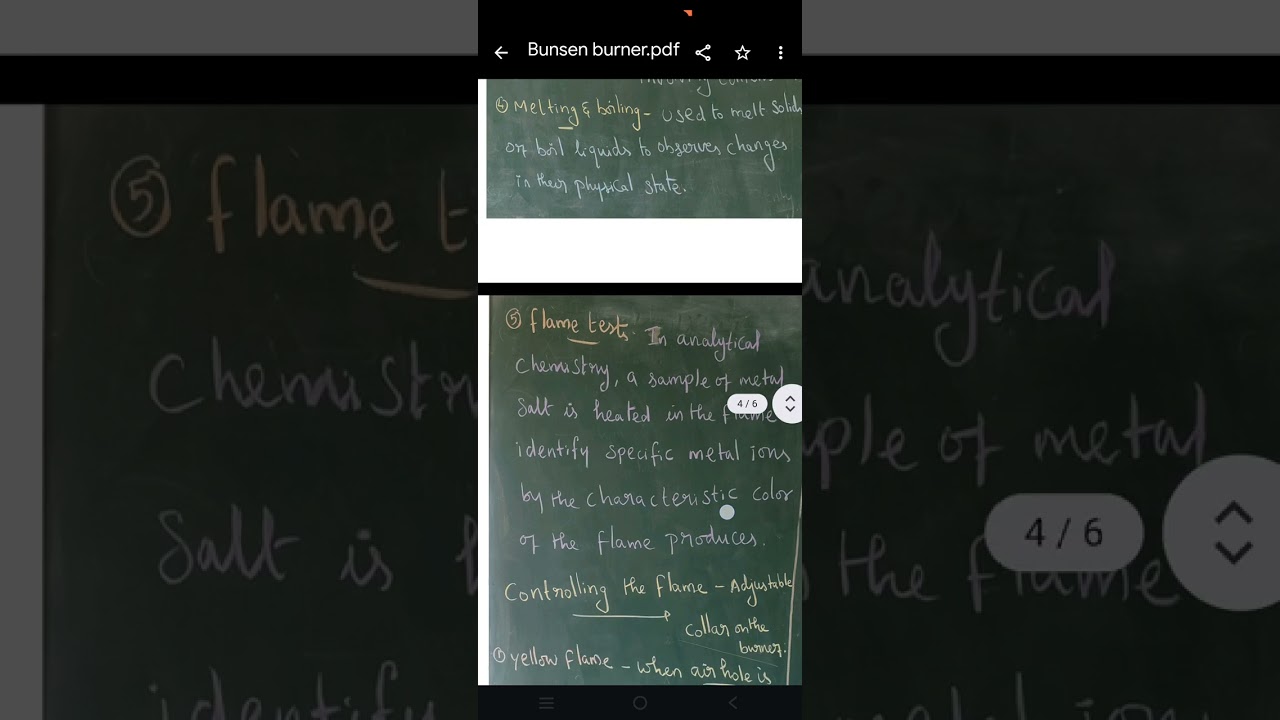 Bunsen burner.pdf
④ Melting & boiling - used to melt solids
or boil liquids to observes changes
in their physical state.
⑤ flame tests. In analytical
Chemistry, a sample of metal
Salt is heated in the flame
identify specific metal ions
by the characteristic color
of the flame produces.
4 / 6
Controlling the flame - Adjustable
collar on the
burner.
① yellow flame - when air hole is
⑤ flame t
analytical
Chemistry
ple of metal
Salt is
the flame
4 / 6
identify
metal ions